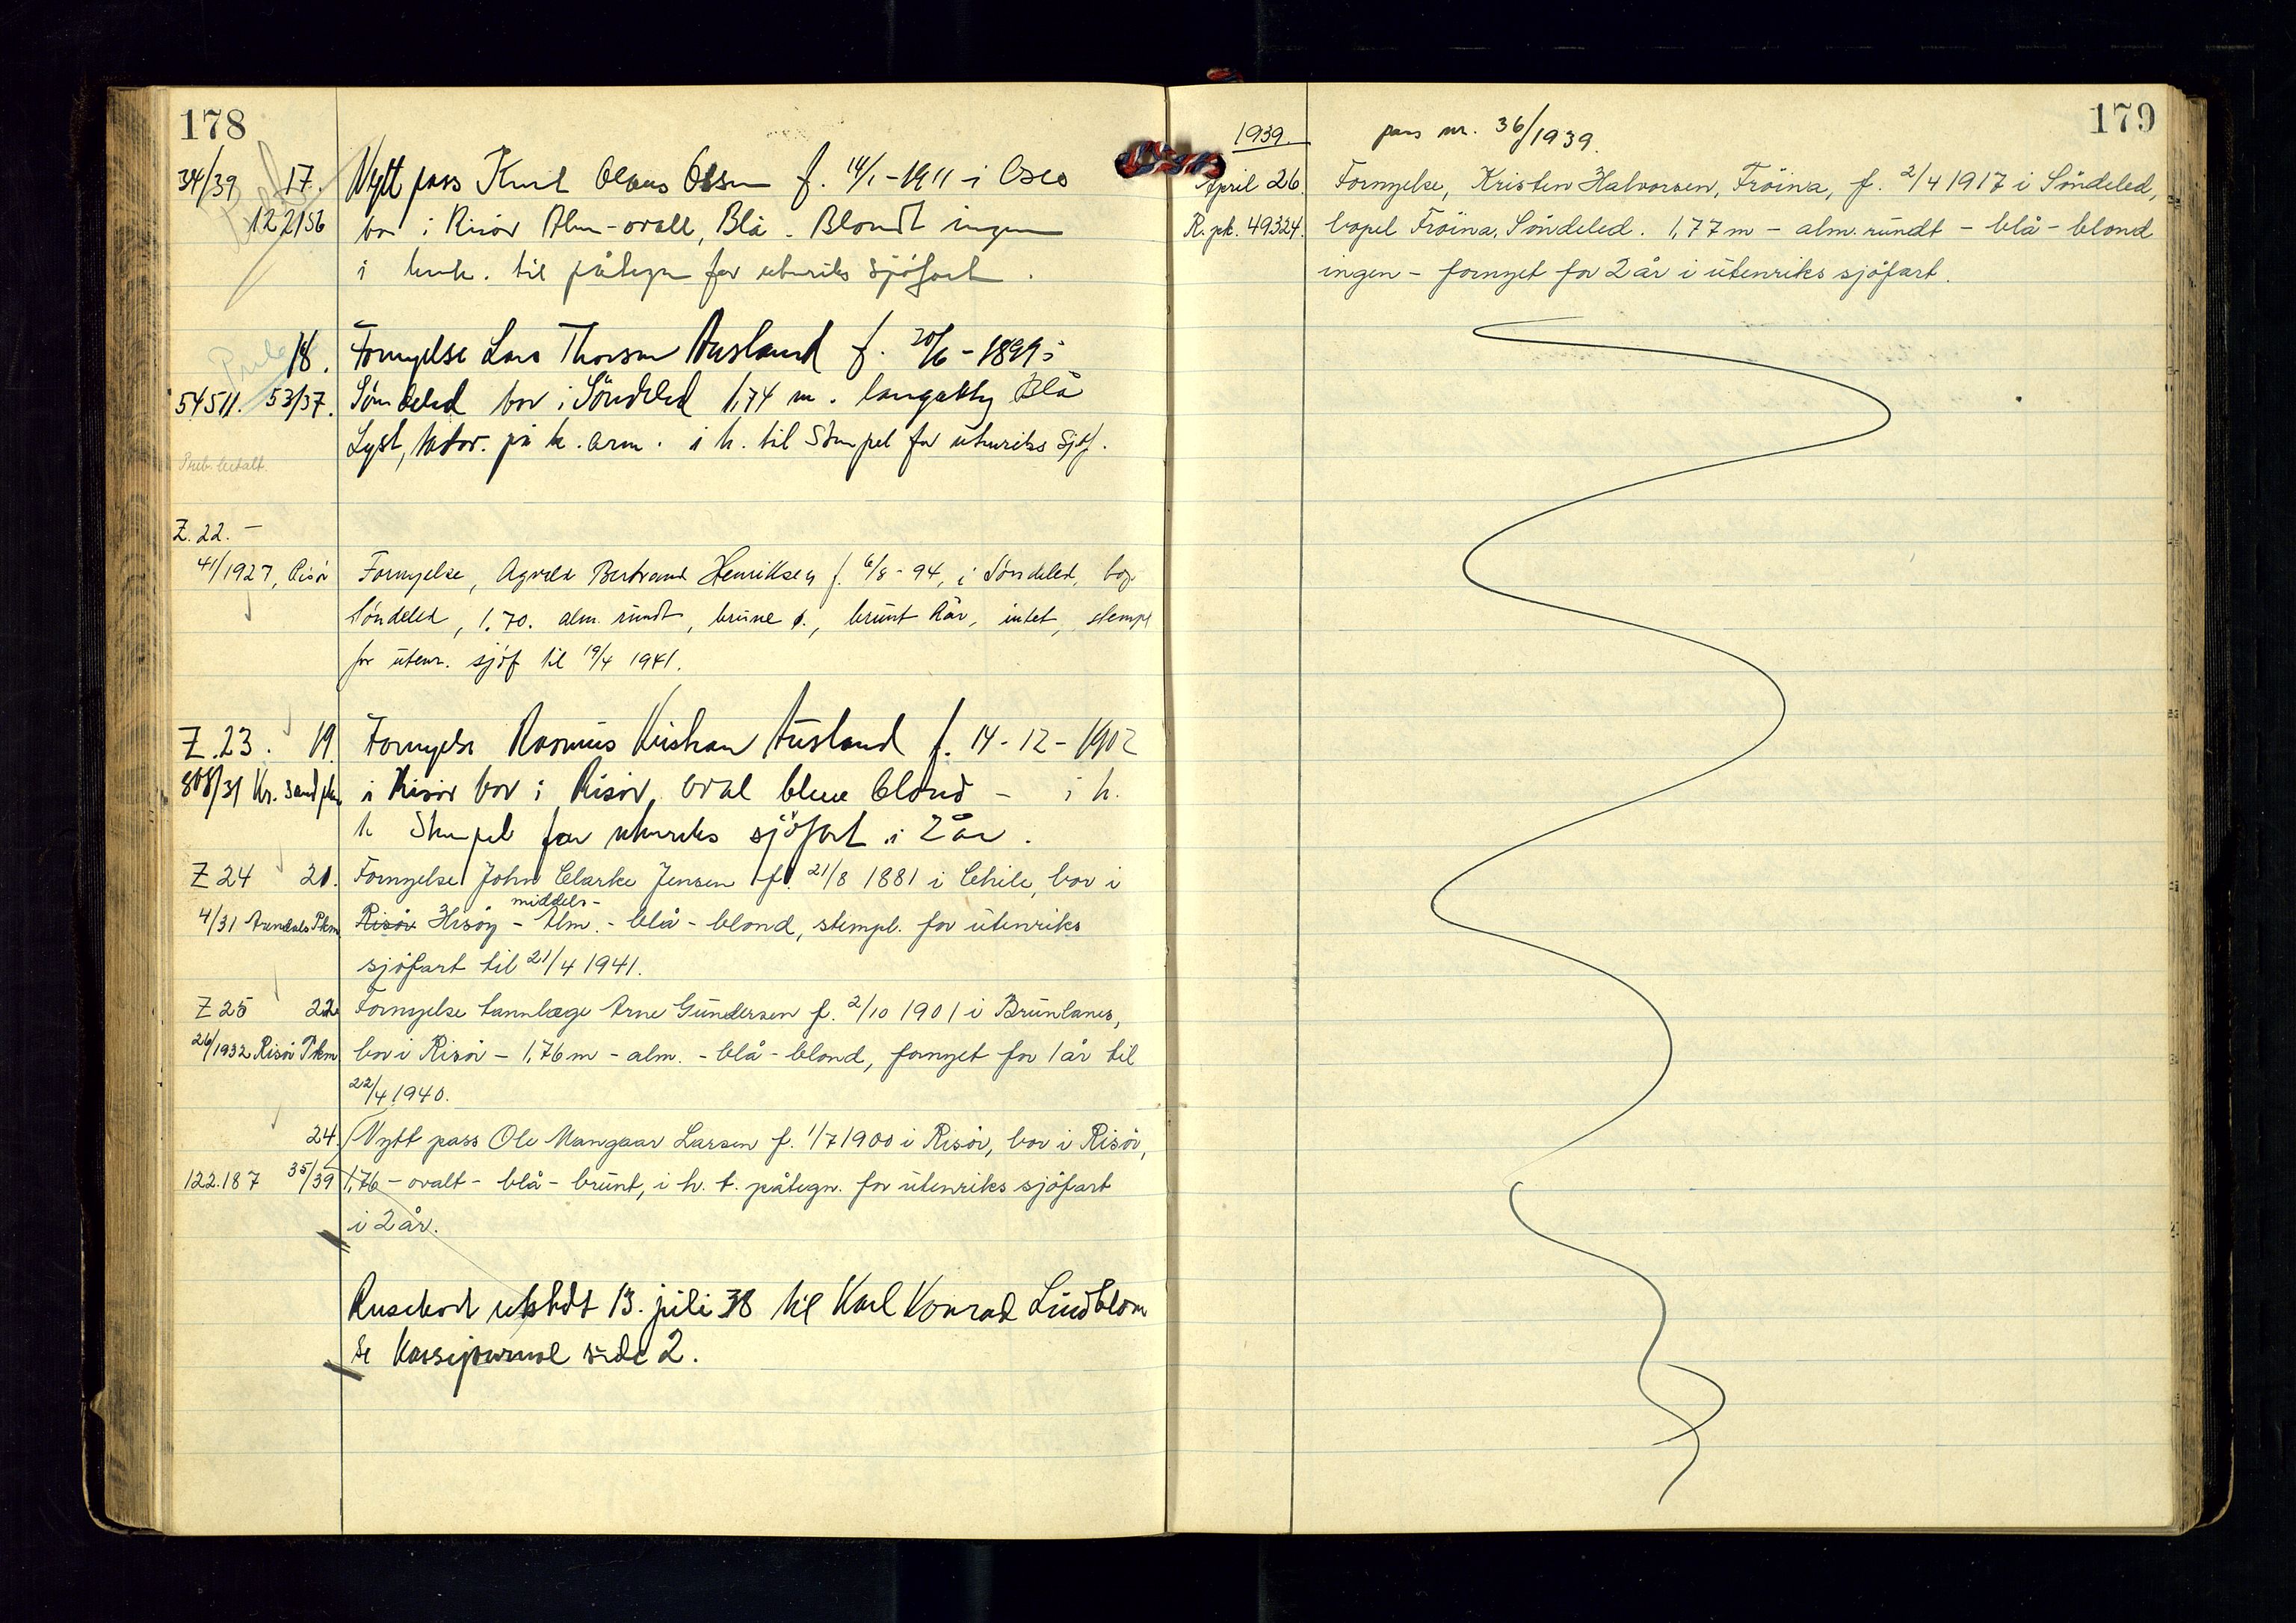 178
34/39 17. Nytt pass Knut Olaus Olsen f. 14/1-1911 i Oslo
122156 bor i Risör Alm-ovalt, Blå. Blondt ingen
i henh. til påtegn for utenriks sjöfart.
18. Fornyelse Lars Thorsen Ausland f. 20/6-1899 i
54511. 53/37. Söndeled bor i Söndeled 1,74 m. langaktig Blå
Lyst, tator. på h. arm. i h. til Stempel for utenriks Sjöf.
Preb. betalt.
Z. 22. –
41/1927, Risör Fornyelse, Bertrand Henriksen f. 6/8-94, i Söndeled, bor
Söndeled, 1.70. alm. rundt, brune ö., brunt hår, intet, stempl
for utenr. sjöf til 19/4 1941.
Z. 23. 19. Fornyelse Rasmus Kristian Ausland f. 14-12-1902
808/31 Kr. sand pkm i Risör bor i Risör, oval blue blond – i h.
h Stempel for utenriks sjöfart i 2 år.
Z 24 21. Fornyelse John Clarke Jensen f. 21/8 1881 i Chile, bor i
middels-
4/31 Arendals Pkm Risör Hisöy – Alm. – blå – blond, stempl. for utenriks
sjöfart til 21/4 1941.
Z 25 22 Fornyelse tannlæge Arne Gundersen f. 2/10 1901 i Brunlanes,
26/1932 Risör Pkm bor i Risör – 1,76 m – alm. – blå – blond, fornyet for 1 år til
22/4 1940.
24. Nytt pass Ole Mangaar Larsen f. 1/7 1900 i Risör, bor i Risör,
122.187 35/39 1,76 – ovalt – blå – brunt, i h. t. påtegn. for utenriks sjöfart
i 2 år.
utstedt 13. juli 38 til Karl Konrad Lindblom
se Kassejournal side 2.
179
1939. pass nr. 36/1939.
April 26. Fornyelse, Kristen Halvorsen, Fröina, f. 2/4 1917 i Söndeled,
R. pk. 49324. bopel Fröina, Söndeled. 1,77 m – alm. rundt – blå – blond
ingen – fornyet for 2 år i utenriks sjöfart.